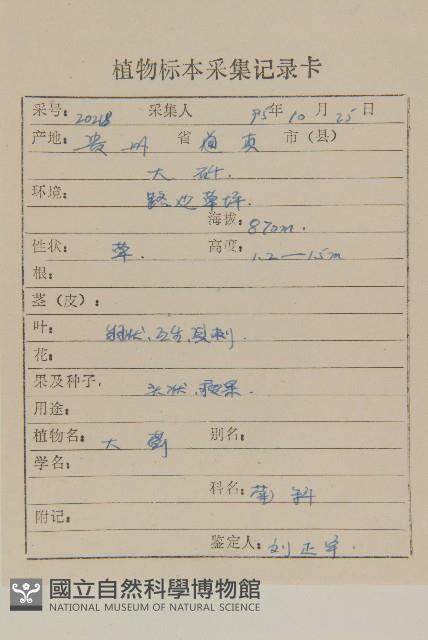 植物标本采集记录卡
采号: 20218 采集人 95年 10月 25日
产地: 贵州 省 道真 市(县)
大矸.
环境: 路边草坪.
海拔: 870m.
性状: 草. 高度: 1.2—1.5m
根:
茎(皮):
叶: 羽状、互生、具刺.
花:
果及种子. 头状、瘦果.
用途:
植物名: 大蓟 别名:
学名:
科名: 菊科
附记:
鉴定人: 刘正宇.
國立自然科學博物館
NATIONAL MUSEUM OF NATURAL SCIENCE